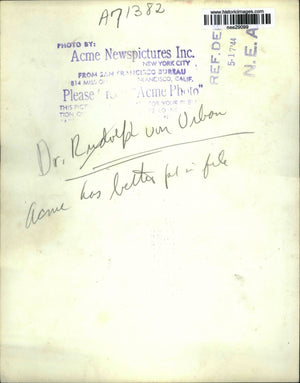 A71382
www.historicimages.com
nee29099
PHOTO BY:
Acme Newspictures Inc.
NEW YORK CITY
FROM SAN FRANCISCO BUREAU
814 MISSION
SAN FRANCISCO, CALIF.
Please "Acme Photo"
THIS PICT FOR YOUR PUBLI
TION ON
REF. DEPT
5-17-44
N. E. A.
Dr. Rudolph von Urban
Acme has better in file